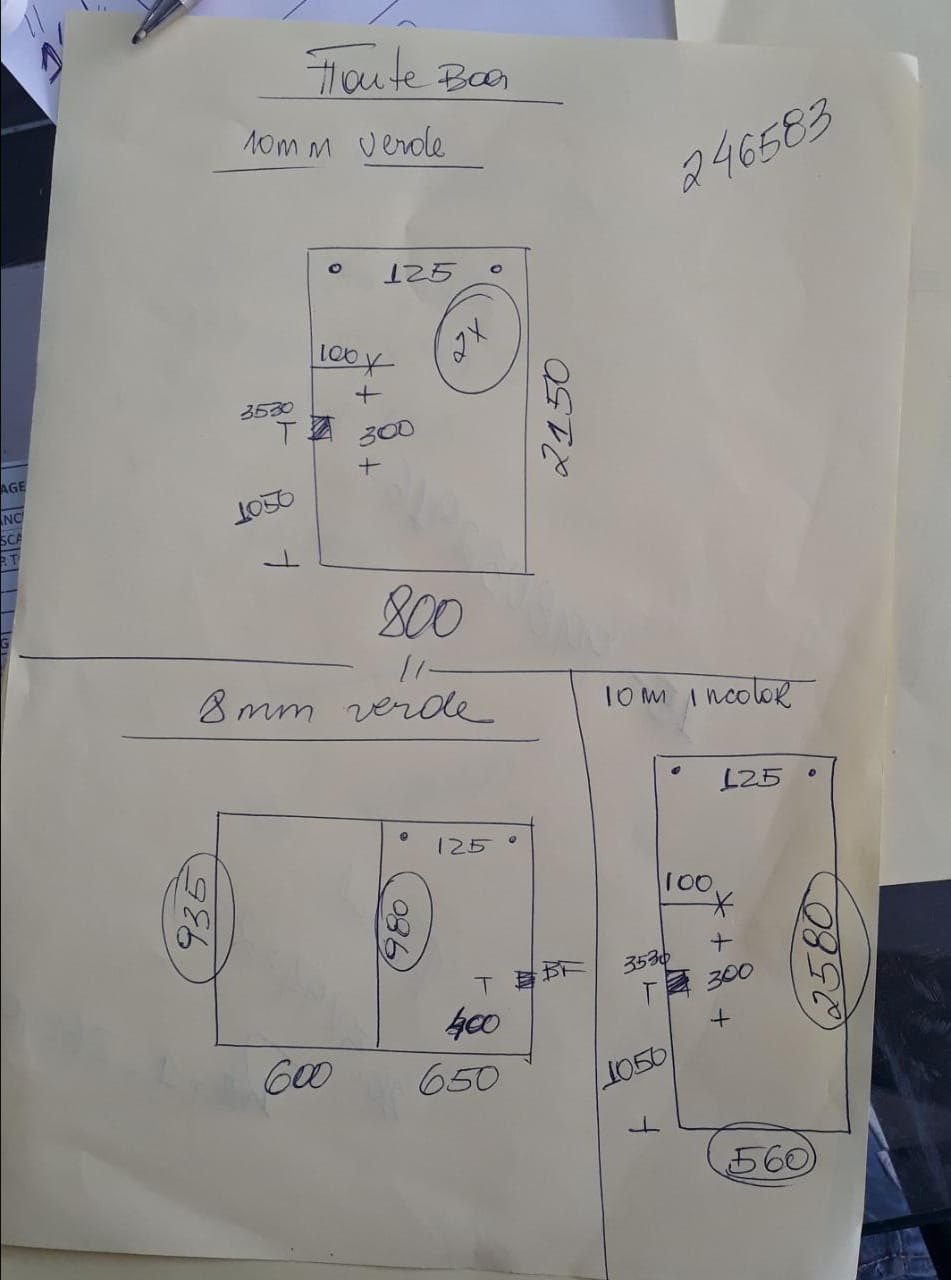 Fonte Boa
10mm verde
246583
125
2X
100
3530
300
2150
1050
800
8mm verde
125
935
980
BF
400
600
650
10m incolor
125
100
3530
300
2580
1050
560